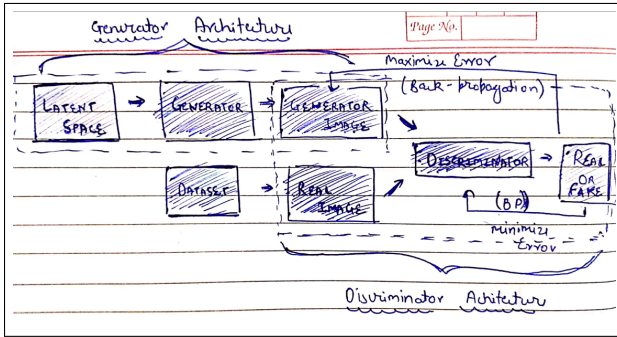 Page No.
Generator Architecture
Maximize Error
(Back-propagation)
LATENT
SPACE
GENERATOR
GENERATOR
IMAGE
DISCRIMINATOR
REAL
OR
FAKE
DATASET
REAL
IMAGE
(BP)
Minimize
Error
Discriminator Achitectur